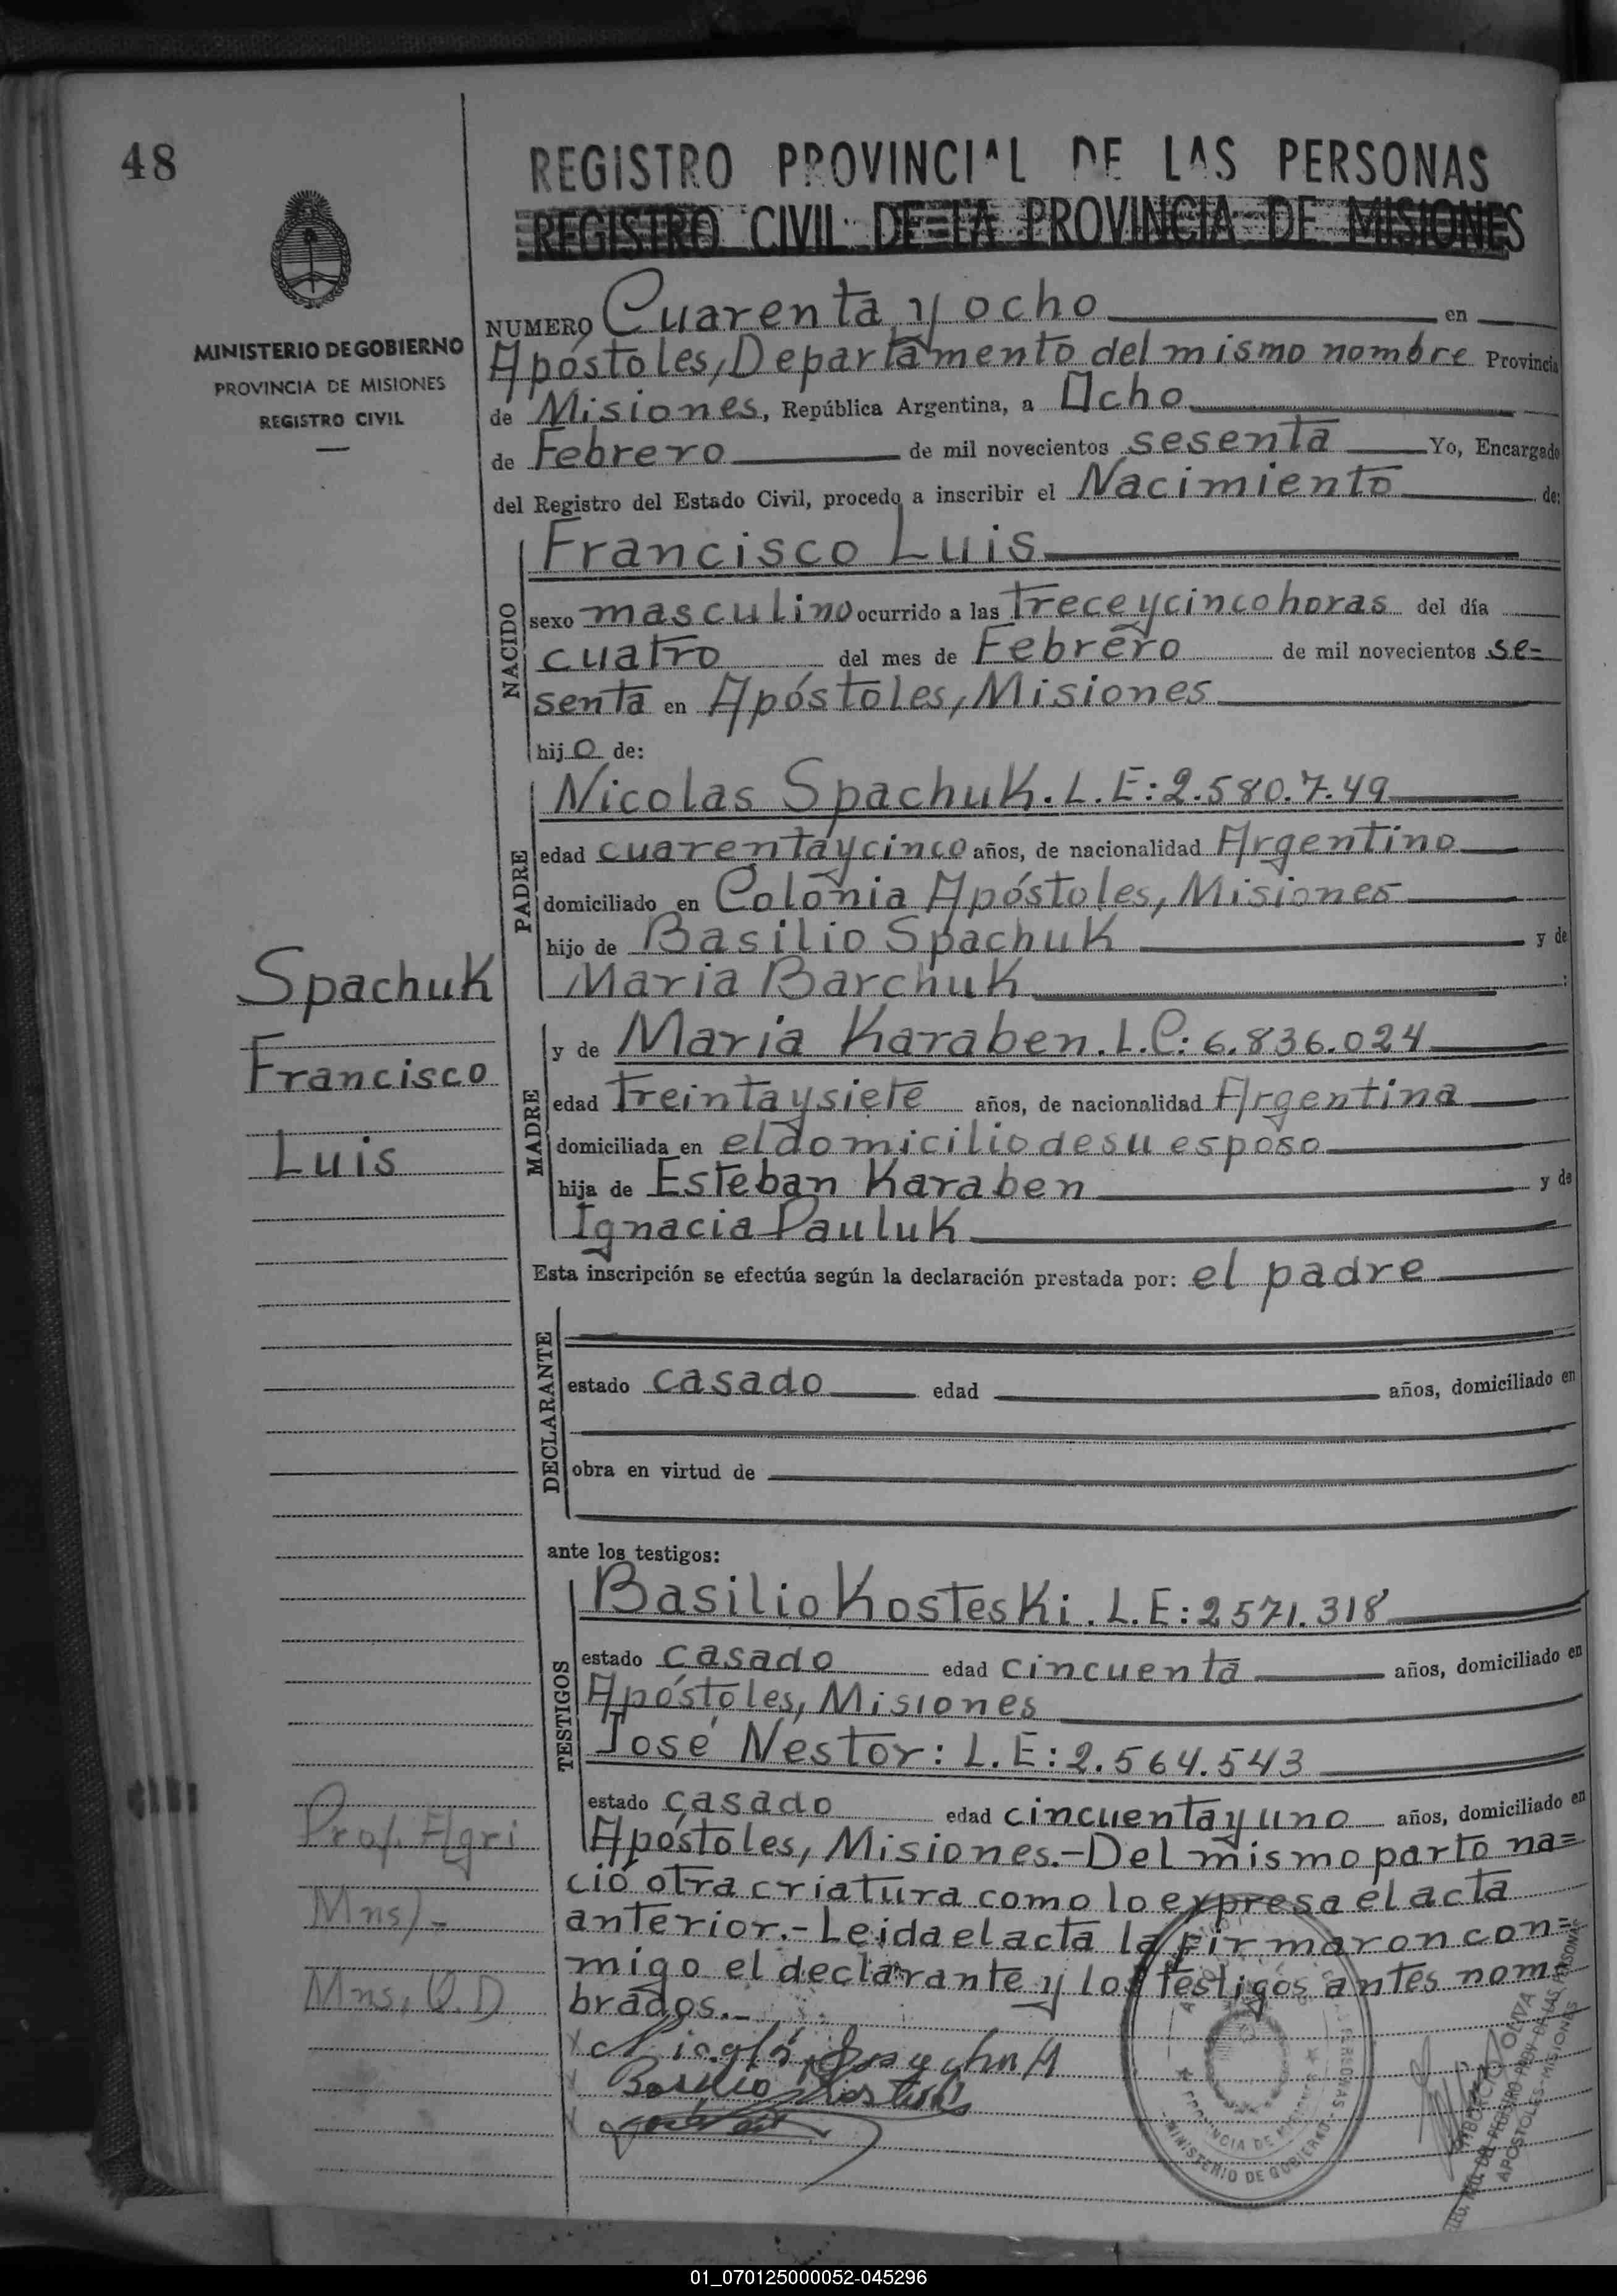 48
REGISTRO PROVINCIAL DE LAS PERSONAS
REGISTRO CIVIL DE LA PROVINCIA DE MISIONES
MINISTERIO DE GOBIERNO
PROVINCIA DE MISIONES
REGISTRO CIVIL
NUMERO Cuarenta y ocho en
Apóstoles, Departamento del mismo nombre Provincia
de Misiones, República Argentina, a Ocho
de Febrero de mil novecientos sesenta Yo, Encargado
del Registro del Estado Civil, procedo a inscribir el Nacimiento de:
NACIDO
Francisco Luis
sexo masculino ocurrido a las trece y cinco horas del día
cuatro del mes de Febrero de mil novecientos se=
senta en Apóstoles, Misiones
hijo de:
PADRE
Nicolas Spachuk. L.E: 2.580.7.49
edad cuarenta y cinco años, de nacionalidad Argentino
domiciliado en Colonia Apóstoles, Misiones
hijo de Basilio Spachuk y de
Maria Barchuk :
MADRE
y de Maria Karaben. L.C: 6.836.024
edad treinta y siete años, de nacionalidad Argentina
domiciliada en el domicilio de su esposo
hija de Esteban Karaben y de
Ignacia Pauluk
Esta inscripción se efectúa según la declaración prestada por: el padre
DECLARANTE
estado casado edad años, domiciliado en
obra en virtud de
ante los testigos:
TESTIGOS
Basilio Kosteski. L.E: 2571.318
estado casado edad cincuenta años, domiciliado en
Apóstoles, Misiones
José Nestor: L.E: 2.564.543
estado casado edad cincuenta y uno años, domiciliado en
Apóstoles, Misiones.- Del mismo parto na=
ció otra criatura como lo expresa el acta
anterior.- Leida el acta la firmaron con=
migo el declarante y los testigos antes nom=
brados.-
Spachuk
Francisco
Luis
Prof. Agri
Mns/-
Mns, Q.D
MINISTERIO DE GOBIERNO
PROVINCIA DE MISIONES
OLIVA
DEL REGISTRO PROV. DE LAS PERSONAS
APOSTOLES - MISIONES
01_070125000052-045296